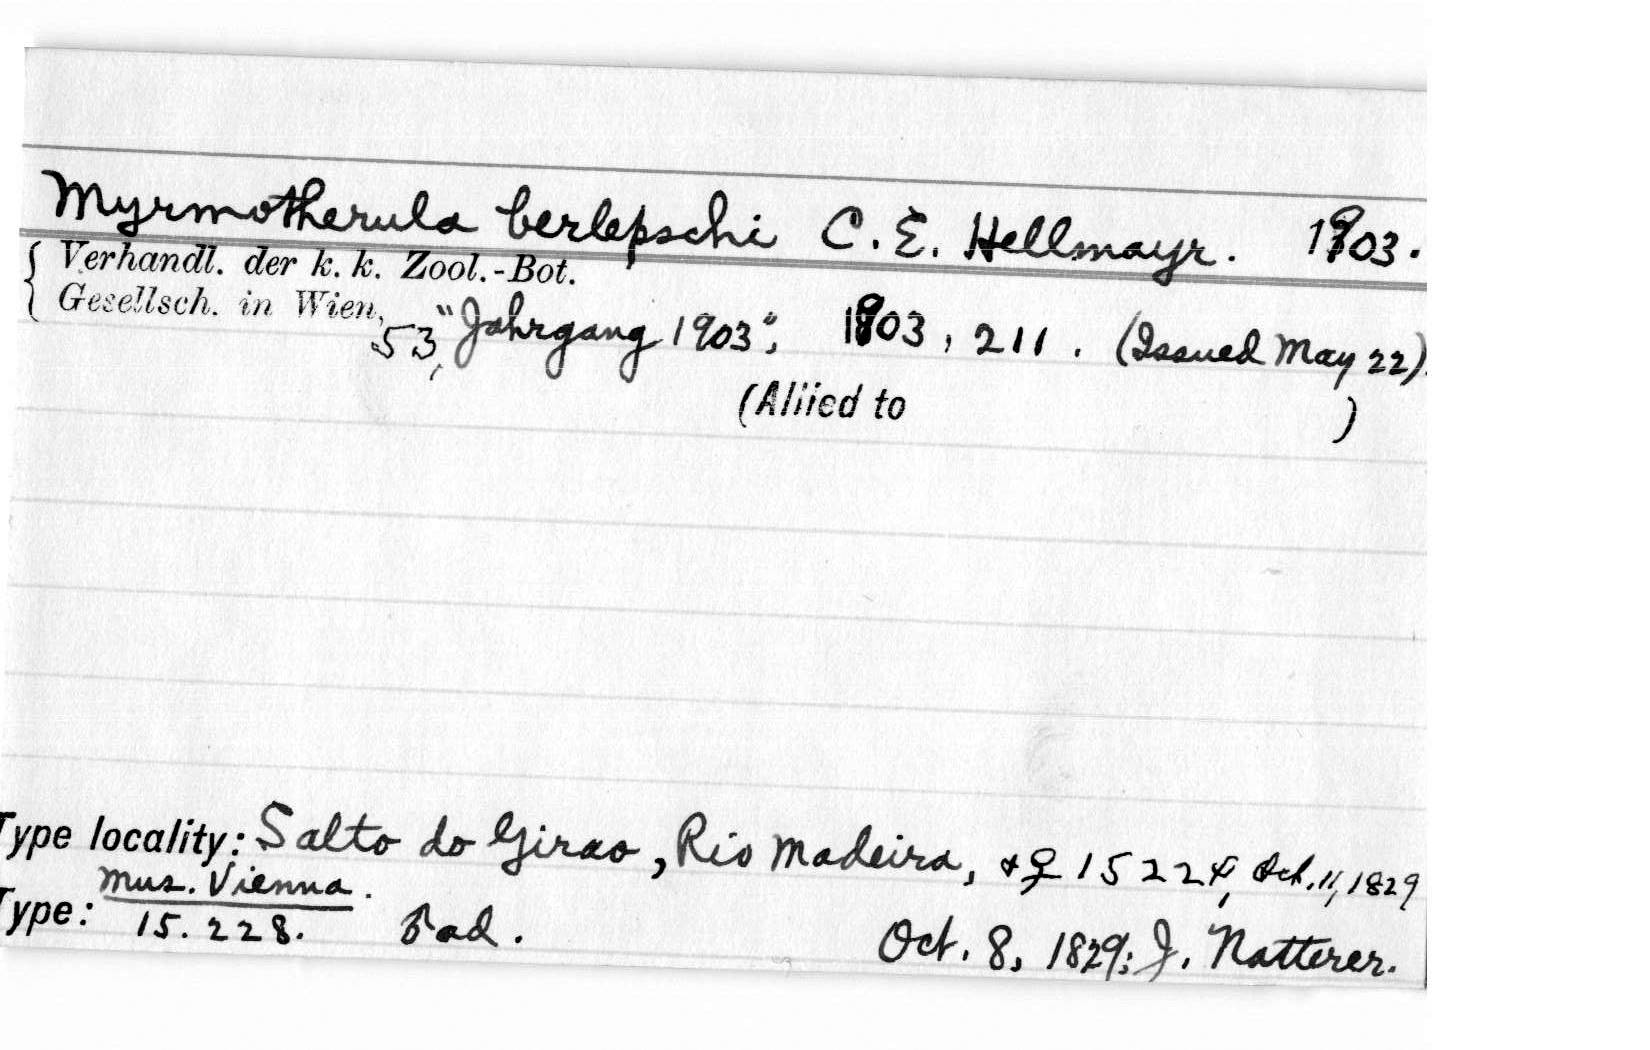 Myrmotherula berlepschi C. E. Hellmayr. 1903.
Verhandl. der k. k. Zool.-Bot.
Gesellsch. in Wien, 53, "Jahrgang 1903", 1903, 211. (Issued May 22).
(Allied to )
Type locality: Salto do Girao, Rio Madeira, + ♀ 15224, Oct. 11, 1829
Type: Mus. Vienna.
15.228. ♂ ad. Oct. 8, 1829; J. Natterer.